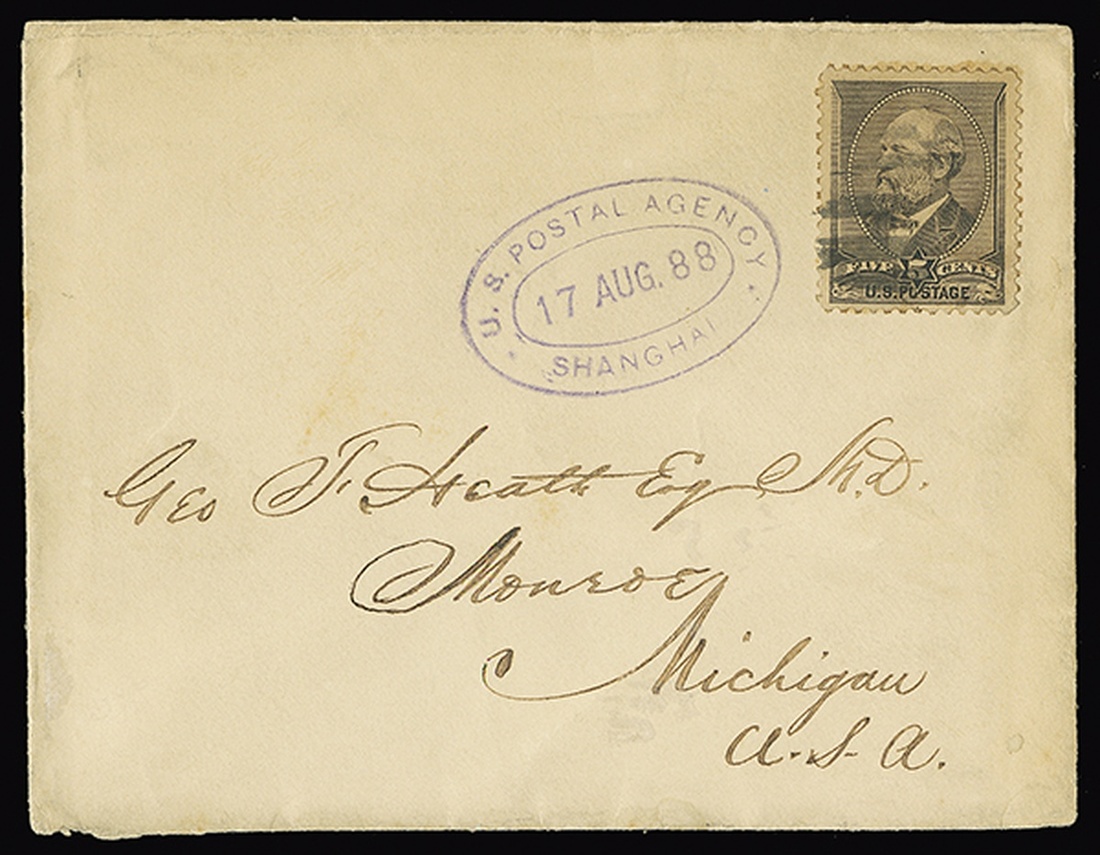 U. S. POSTAL AGENCY
17 AUG. 88
SHANGHAI
FIVE 5 CENTS
U.S. POSTAGE
Geo T. Heath Esq M.D.
Monroe
Michigan
U.S.A.